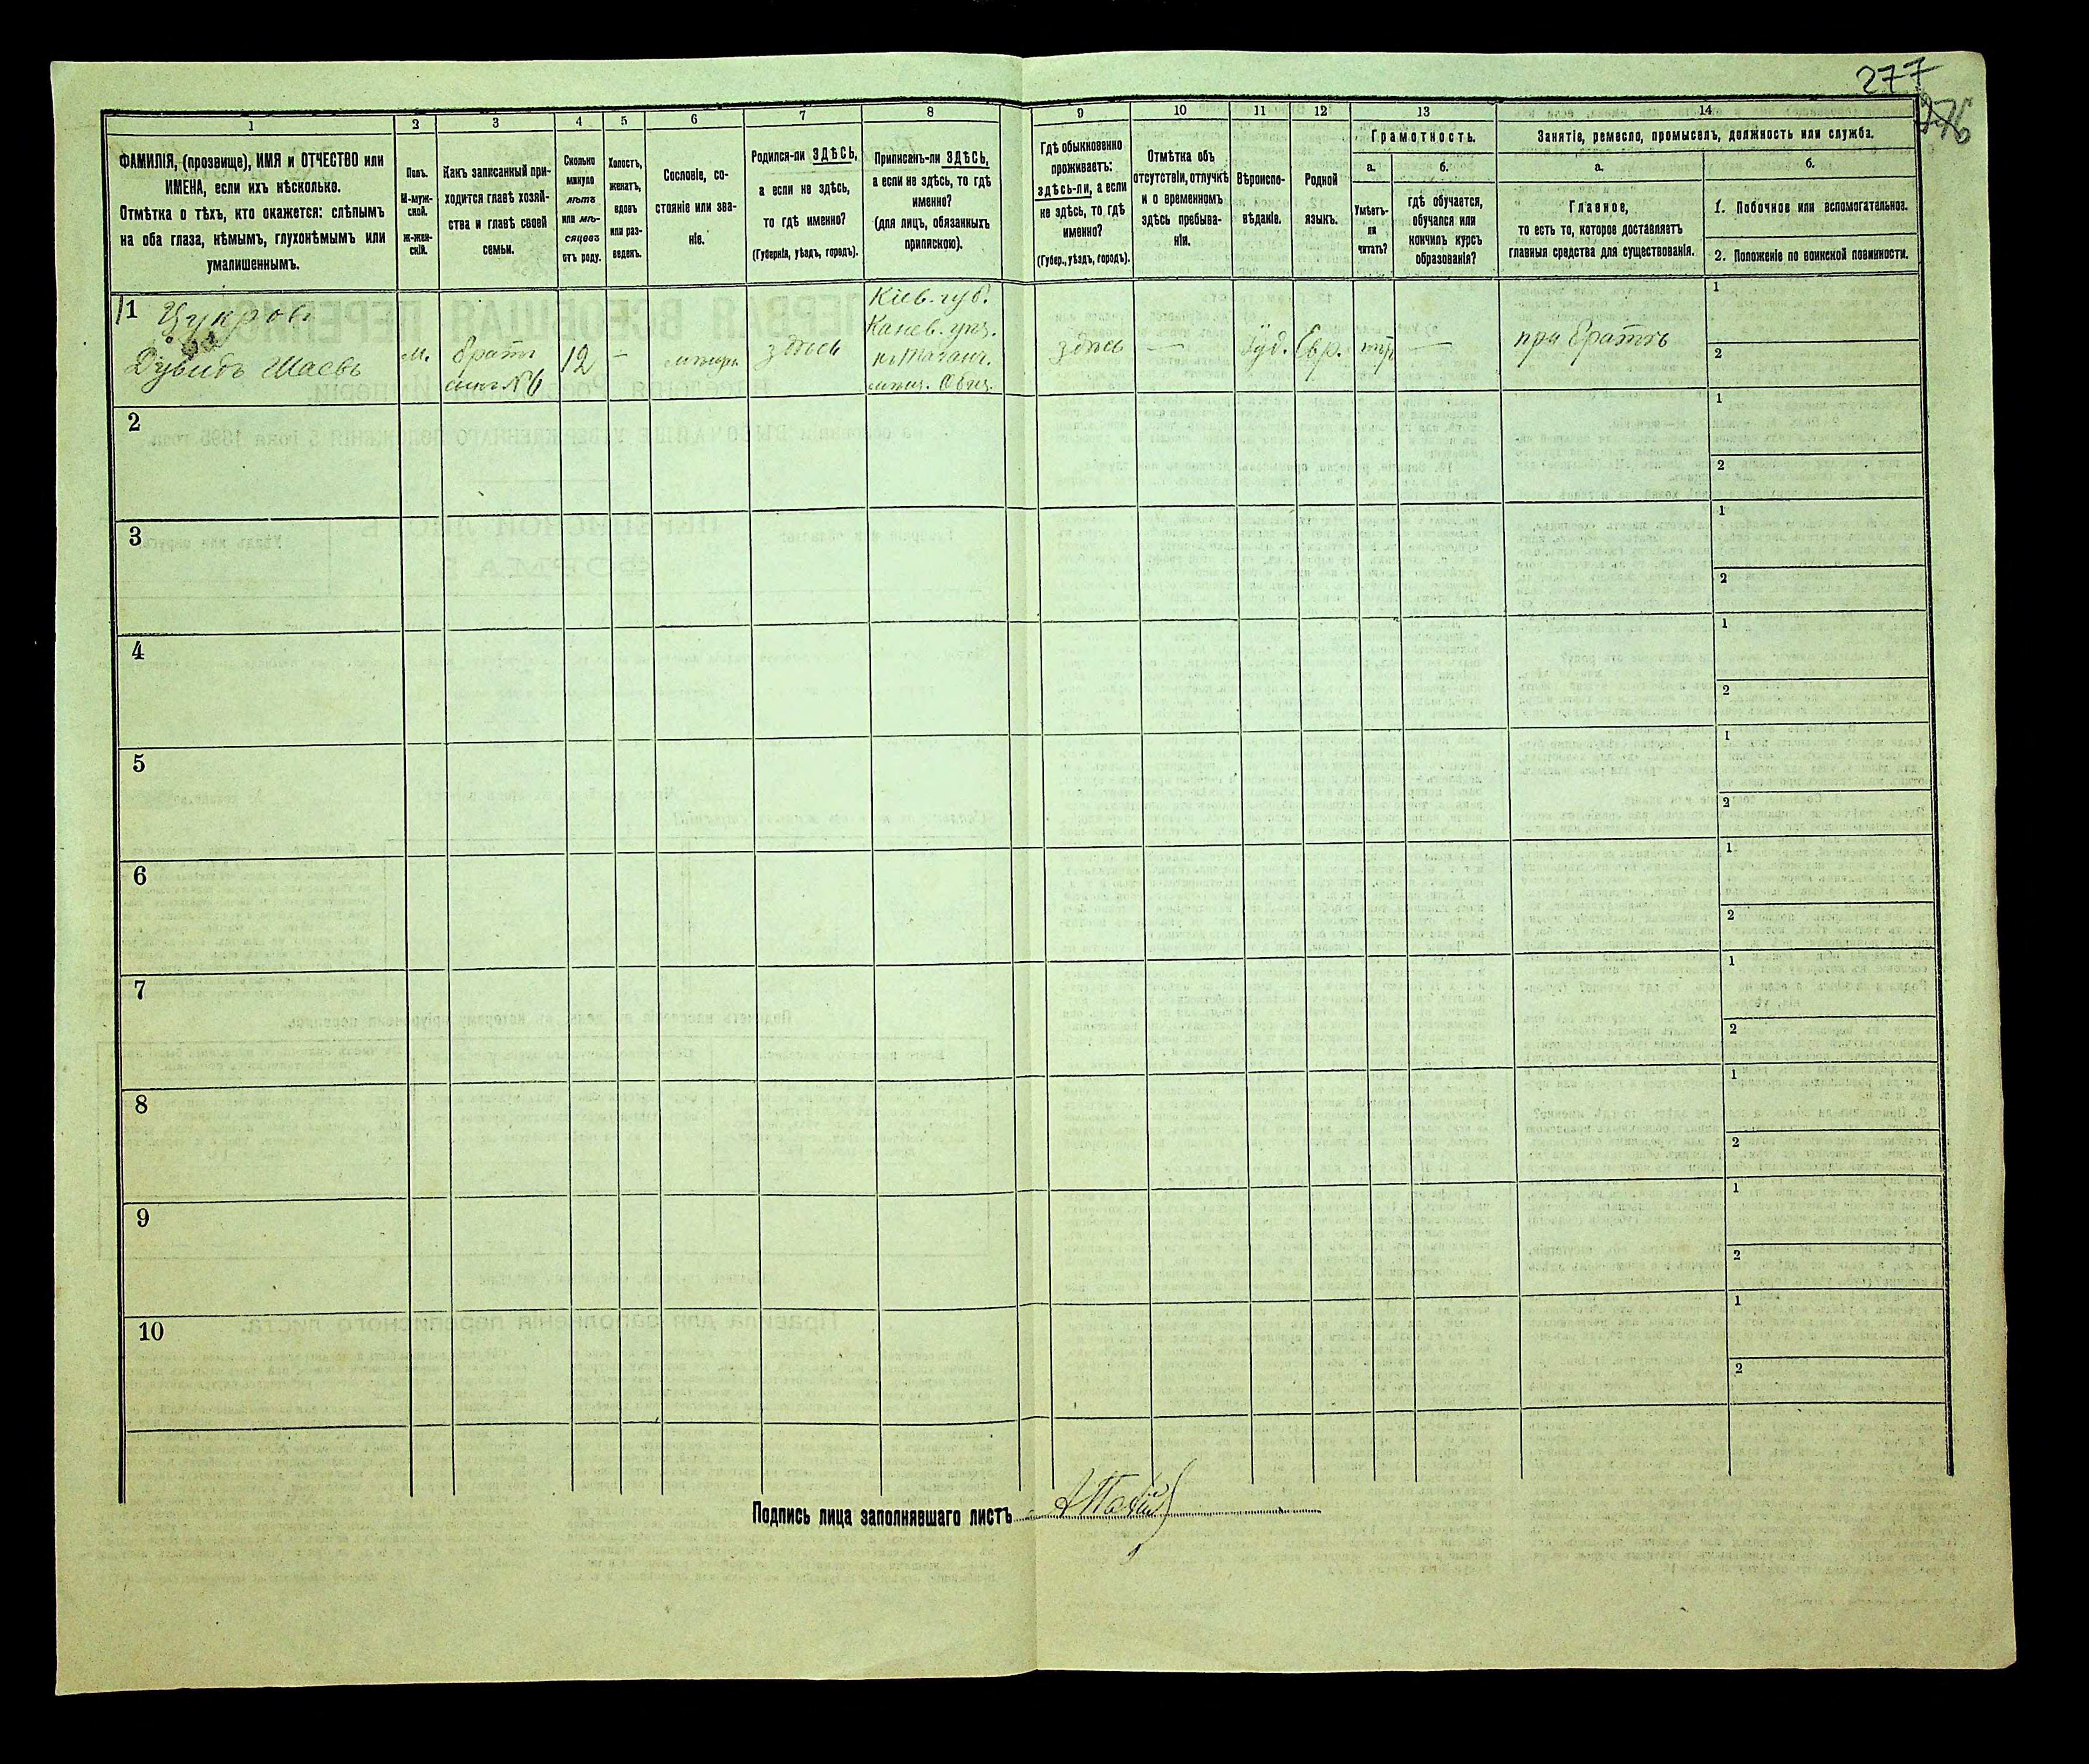 277
276
1
2
3
4
5
6
7
8
9
10
11
12
13
14
ФАМИЛІЯ, (прозвище), ИМЯ и ОТЧЕСТВО или
ИМЕНА, если ихъ нѣсколько.
Отмѣтка о тѣхъ, кто окажется: слѣпымъ
на оба глаза, нѣмымъ, глухонѣмымъ или
умалишеннымъ.
Полъ.
М-муж-
ской.
Ж-жен-
скій.
Какъ записанный при-
ходится главѣ хозяй-
ства и главѣ своей
семьи.
Сколько
минуло
лѣтъ
или мѣ-
сяцевъ
отъ роду.
Холостъ,
женатъ,
вдовъ
или раз-
веденъ.
Сословіе, со-
стояніе или зва-
ніе.
Родился-ли ЗДѢСЬ,
а если не здѣсь,
то гдѣ именно?
(Губернія, уѣздъ, городъ).
Приписанъ-ли ЗДѢСЬ,
а если не здѣсь, то гдѣ
именно?
(для лицъ, обязанныхъ
припискою).
Гдѣ обыкновенно
проживаетъ:
здѣсь-ли, а если
не здѣсь, то гдѣ
именно?
(Губер., уѣздъ, городъ).
Отмѣтка объ
отсутствіи, отлучкѣ
и о временномъ
здѣсь пребыва-
ніи.
Вѣроиспо-
вѣданіе.
Родной
языкъ.
Грамотность.
а.
б.
Умѣетъ-
ли
читать?
гдѣ обучается,
обучался или
кончилъ курсъ
образованія?
Занятіе, ремесло, промыселъ, должность или служба.
а.
б.
Главное,
то есть то, которое доставляетъ
главныя средства для существованія.
1. Побочное или вспомогательное.
2. Положеніе по воинской повинности.
1
Цукров
Дувидъ Шаевъ
м.
братъ
12
—
здѣсь
Кіев. губ.
Канев. уѣз.
здѣсь
—
Іуд.
Евр.
—
при братѣ
1
2
2
1
2
3
1
2
4
1
2
5
1
2
6
1
2
7
1
2
8
1
2
9
1
2
10
1
2
Подпись лица заполнявшаго листъ